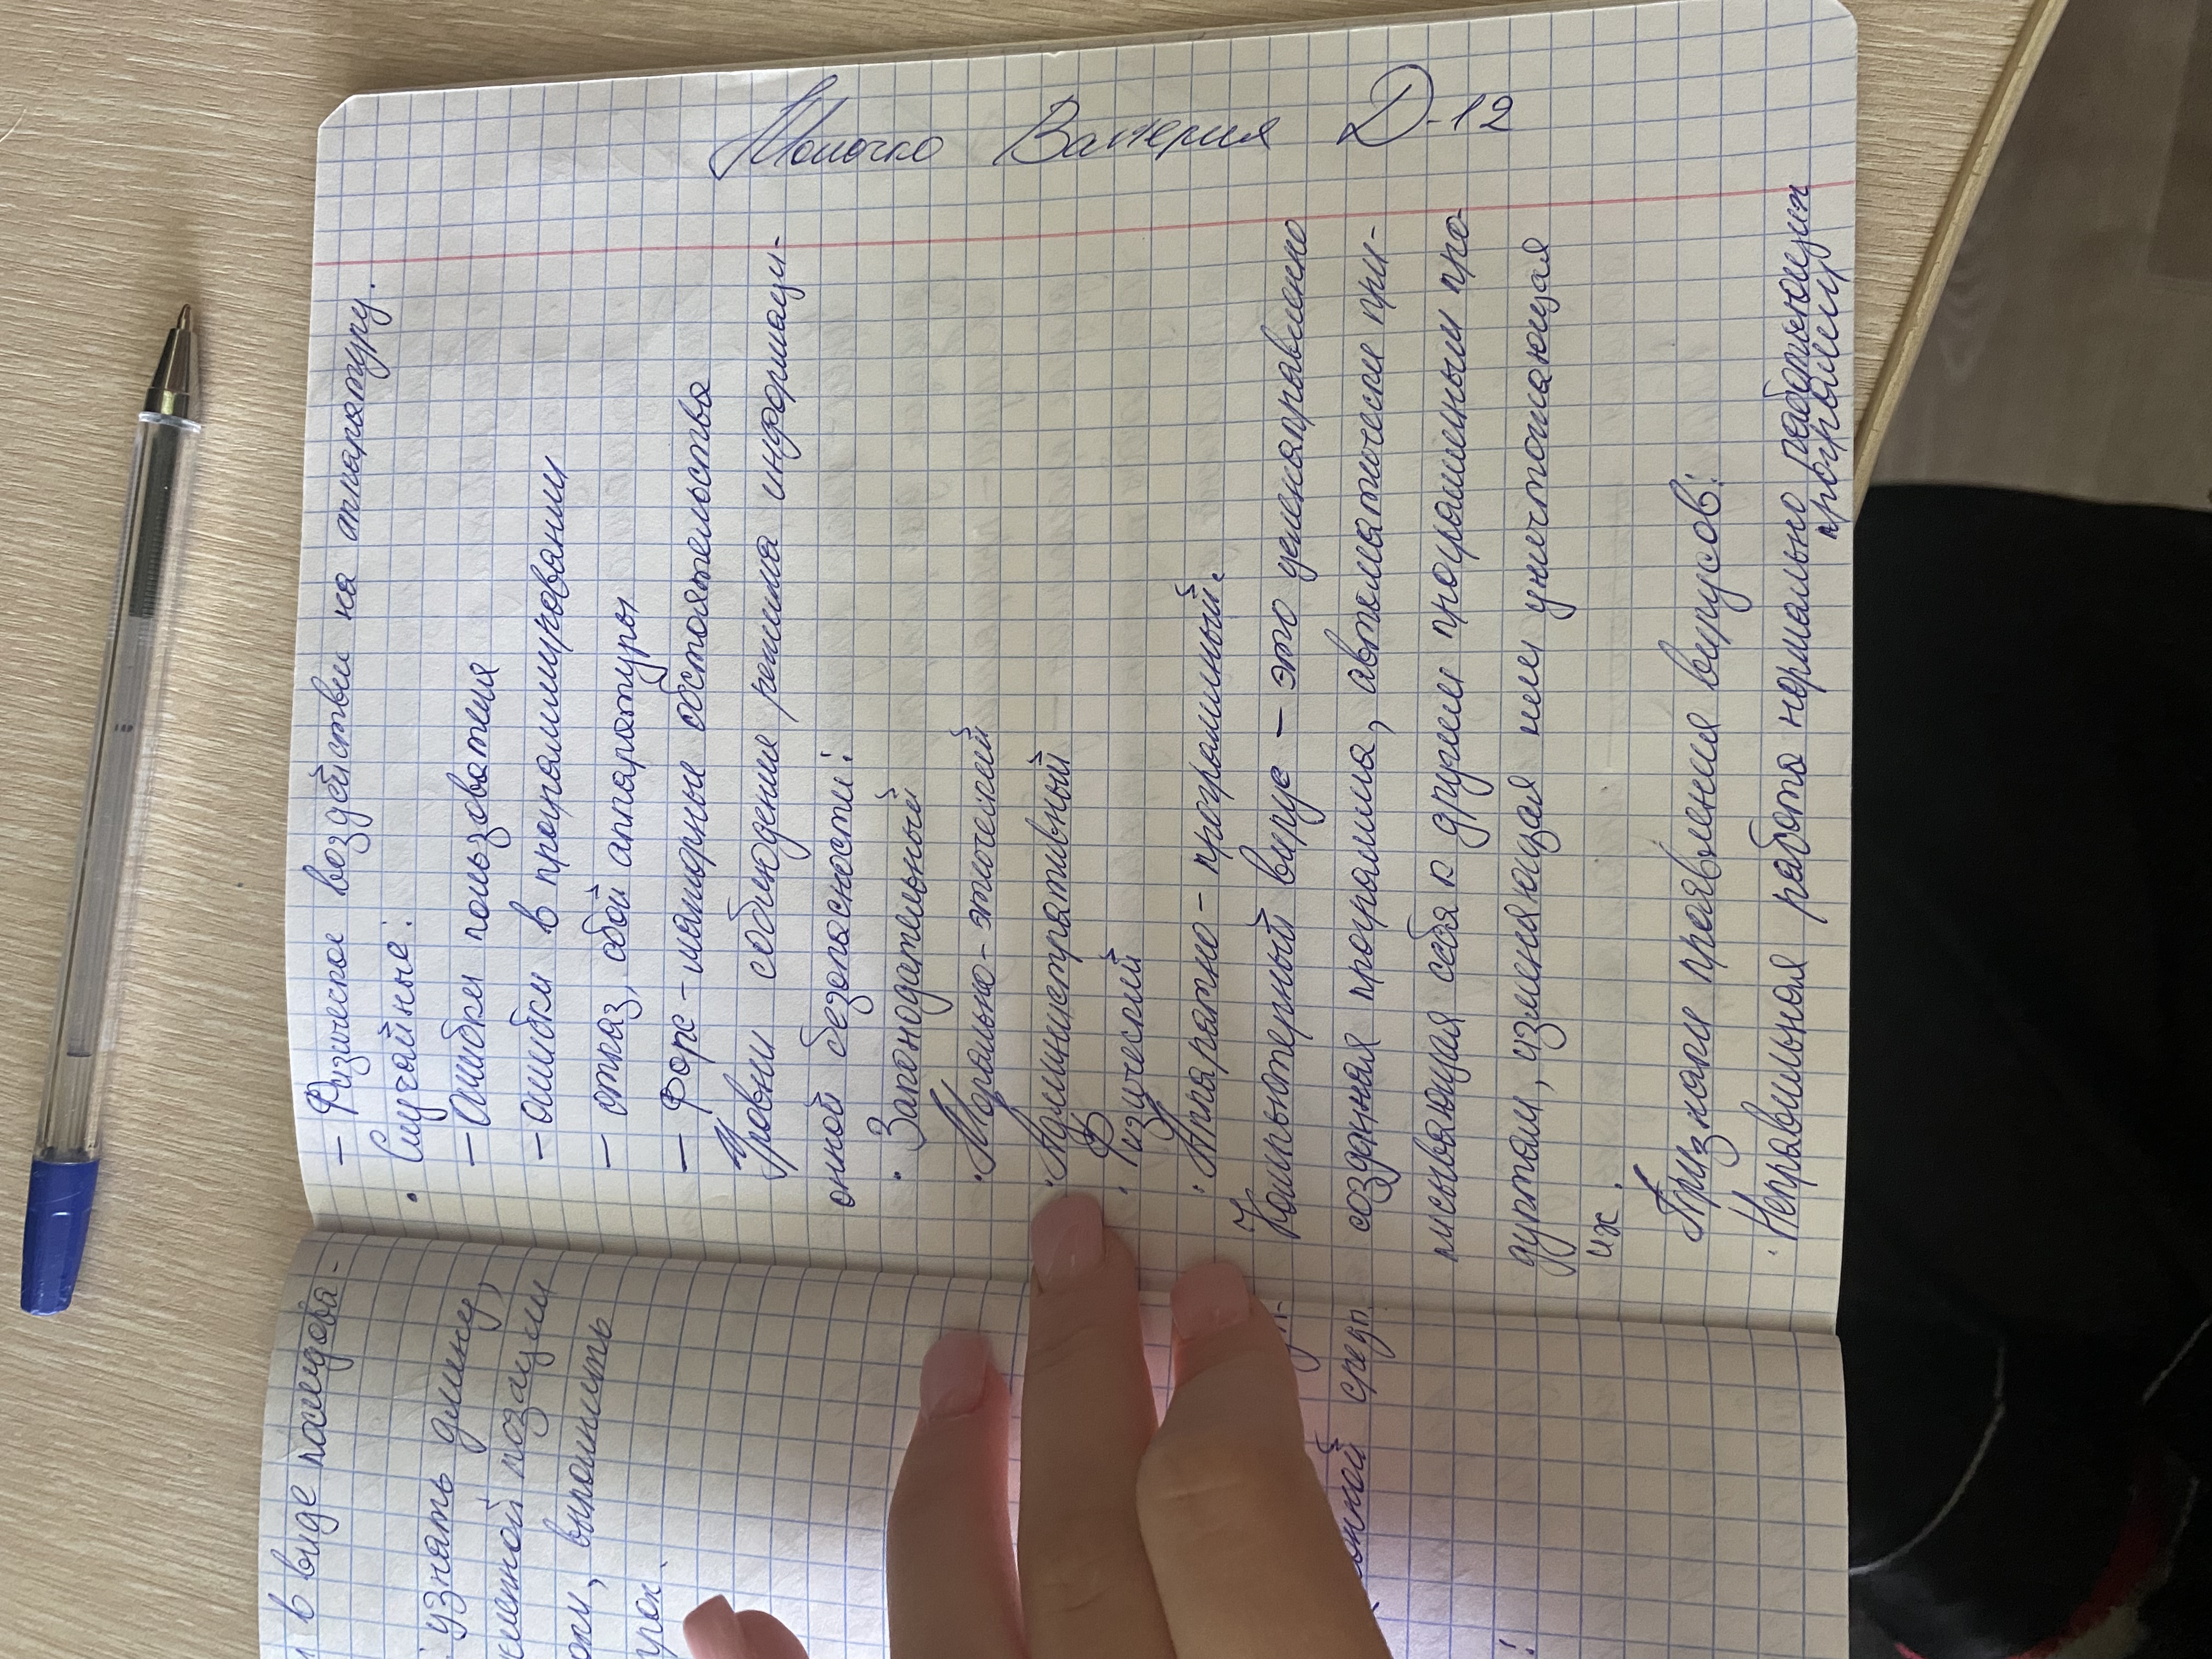 – Физическое воздействие на аппаратуру.
• Случайные:
– Ошибки пользователя
– ошибки в программировании
– отказ, сбой аппаратуры
– Форс-мажорные обстоятельства
Уровни соблюдения режима информаци-
онной безопасности:
• Законодательный
• Морально-этический
• Административный
• Физический
• Аппаратно-программный.
Компьютерный вирус – это целенаправленно
созданная программа, автоматически при-
писывающая себя к другим программным про
дуктам, изменяющая или уничтожающая
их.
Признаки проявления вирусов:
• Неправильная работа нормально работающих
программ
Валерия Д-12
в виде последова-
узнать длину,
позиции
выполнить